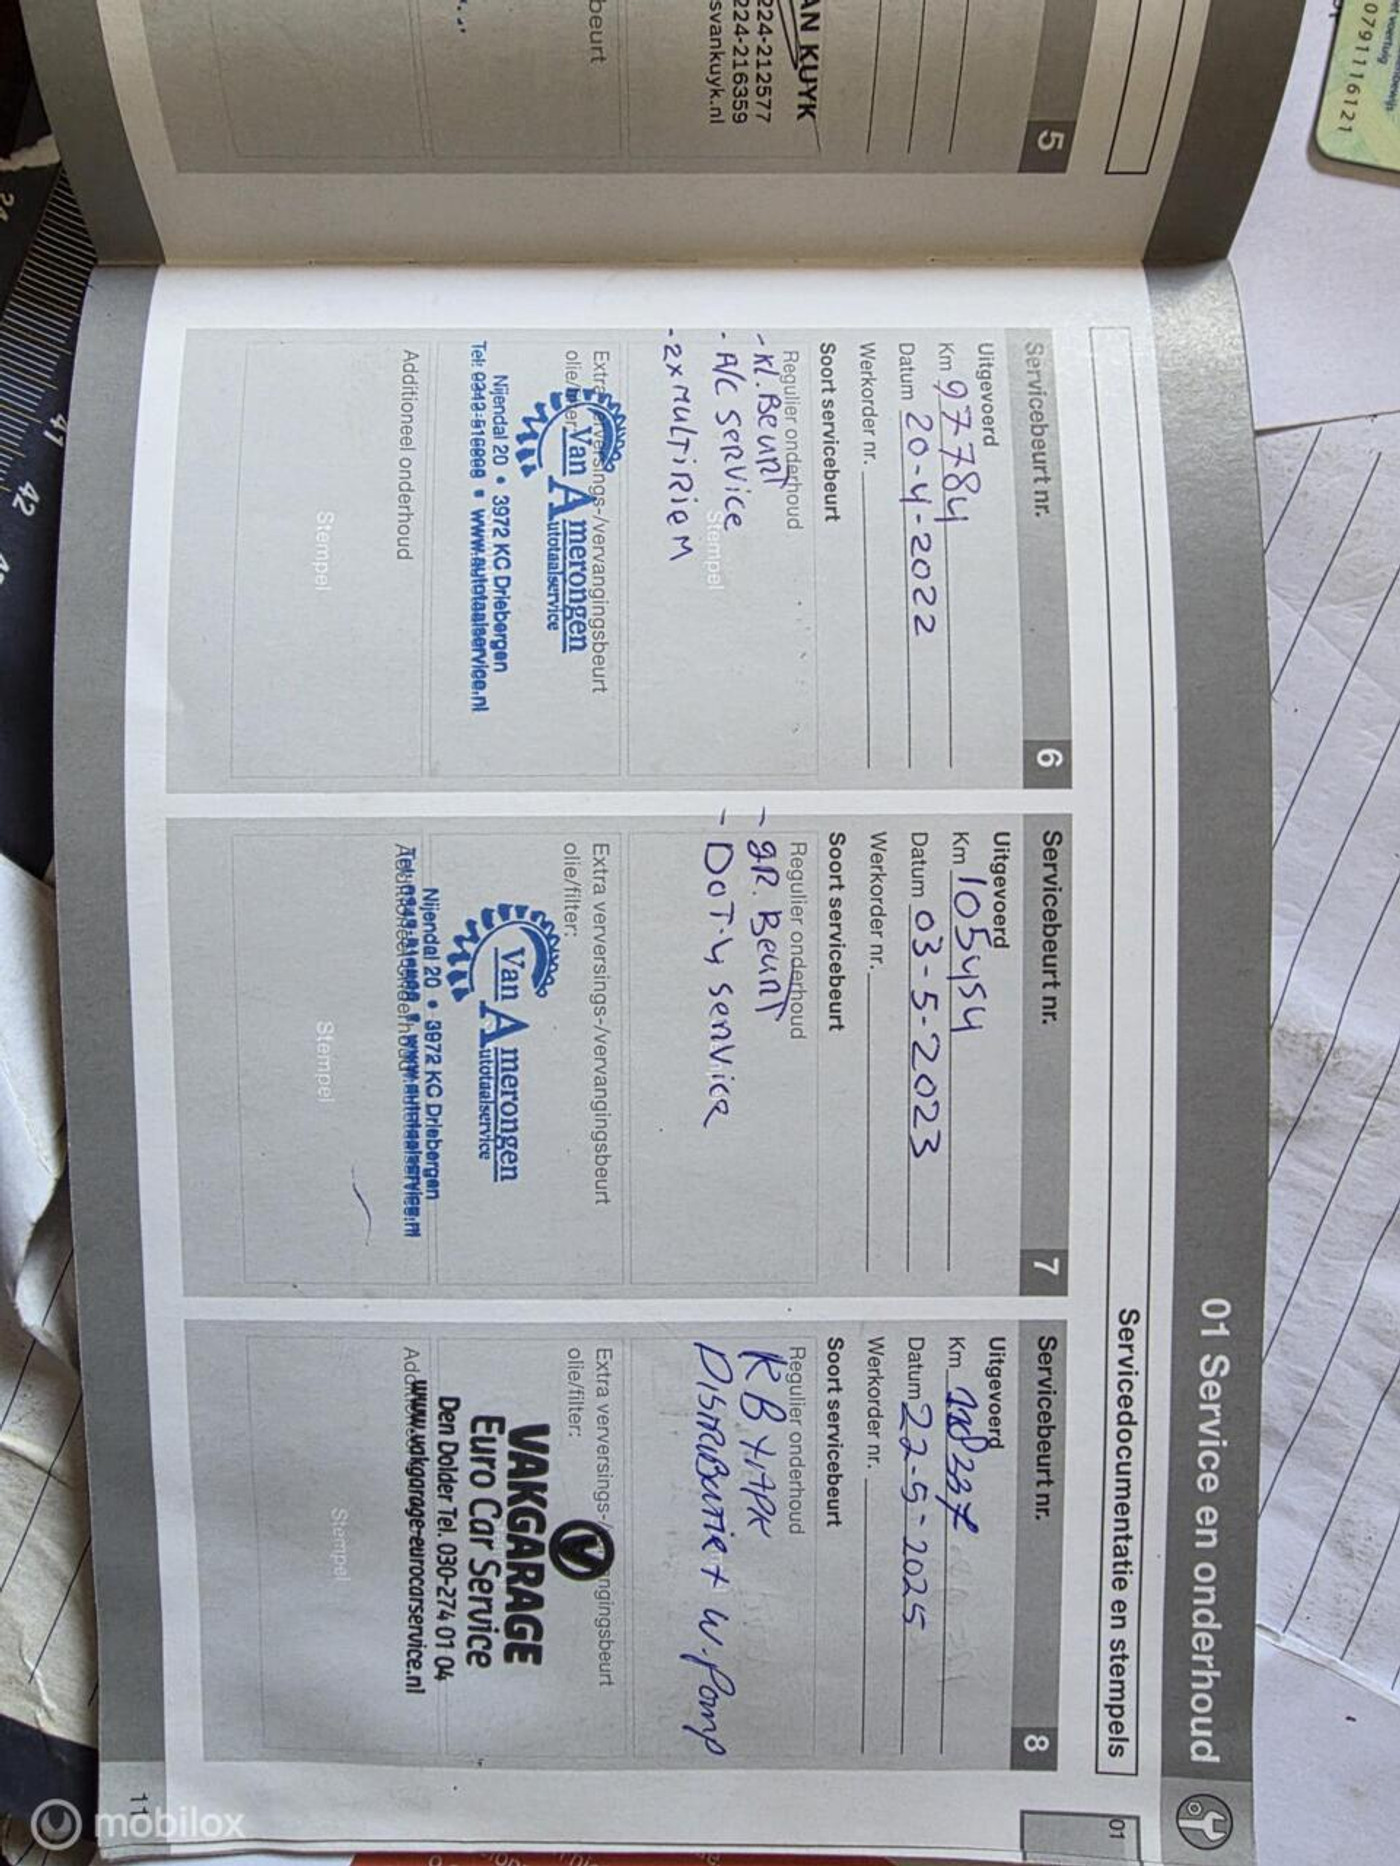 01 Service en onderhoud
Servicedocumentatie en stempels
01
5
AN KUYK
224-212577
224-216359
svankuyk.nl
beurt
Servicebeurt nr. 6
Uitgevoerd
Km 97784
Datum 20-4-2022
Werkorder nr.
Soort servicebeurt
Regulier onderhoud
- Kl. Beurt
- A/C service
Stempel
- 2x MULTiRieM
Extra verversings-/vervangingsbeurt
olie/filter:
Van Amerongen
Autotaalservice
Nijendal 20 • 3972 KC Driebergen
www.autotaalservice.nl
Additioneel onderhoud
Stempel
Servicebeurt nr. 7
Uitgevoerd
Km 105454
Datum 03-5-2023
Werkorder nr.
Soort servicebeurt
Regulier onderhoud
- gR. Beurt
- DOT-4 service
Extra verversings-/vervangingsbeurt
olie/filter:
Van Amerongen
Autotaalservice
Nijendal 20 • 3972 KC Driebergen
www.autotaalservice.nl
Stempel
Servicebeurt nr. 8
Uitgevoerd
Km
Datum 22-5-2025
Werkorder nr.
Soort servicebeurt
Regulier onderhoud
DISTRIBUTIE + W. Pomp
Extra verversings-/vervangingsbeurt
olie/filter:
V
VAKGARAGE
Euro Car Service
Den Dolder Tel. 030-274 01 04
www.vakgarage-eurocarservice.nl
Stempel
11
0791116121
41
42
mobilox